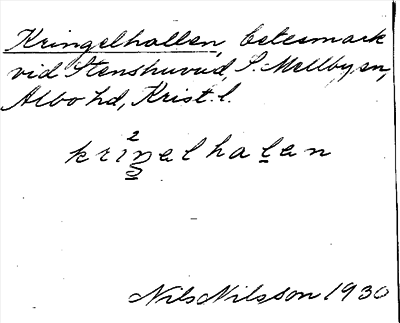 Kringelhallen, betesmark
vid Stenshuvud, S. Mellby sn,
Albo hd, Krist. l.
kri²ŋelhalen
Nils Nilsson 1930